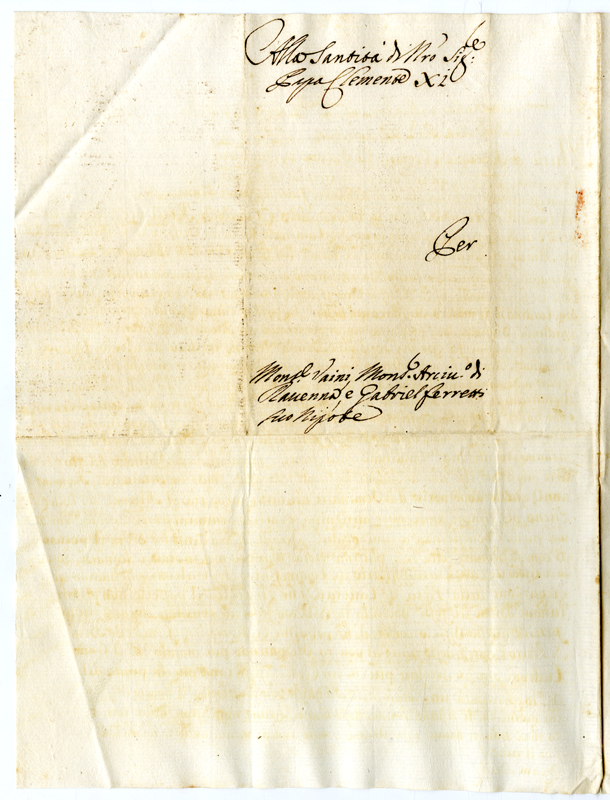 Alla Santità di Nro Sig.re
Papa Clemente XI
Per
Mons.r Vaini, Mons.r Arciu.o di
Rauenna, e Gabriel Ferretti
suo Nipote